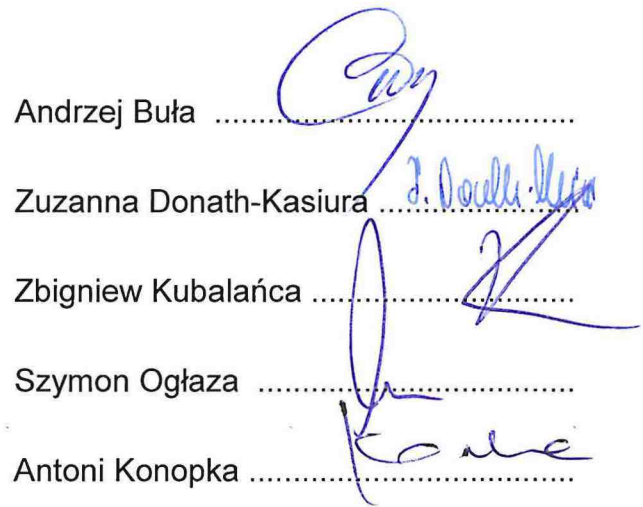 Andrzej Buła ....................................
Zuzanna Donath-Kasiura ....................
Zbigniew Kubalańca ..........................
Szymon Ogłaza ................................
Antoni Konopka .................................